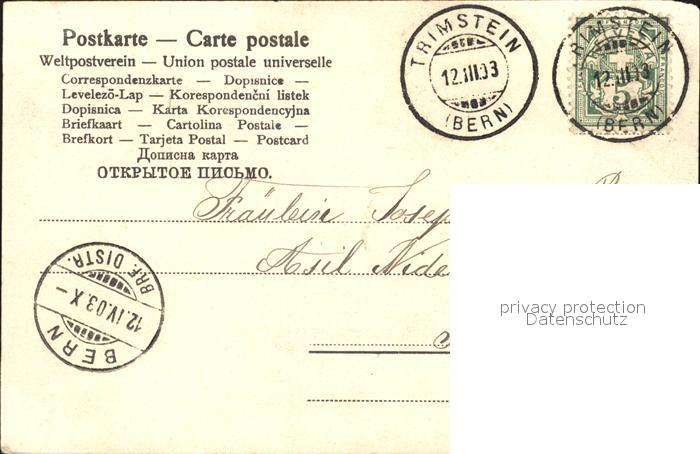 Postkarte — Carte postale
Weltpostverein — Union postale universelle
Correspondenzkarte — Dopisnice —
Levelező-Lap — Korespondenční listek
Dopisnica — Karta Korespondencyjna
Briefkaart — Cartolina Postale —
Brefkort — Tarjeta Postal — Postcard
Дописна карта
ОТКРЫТОЕ ПИСЬМО.
TRIMSTEIN
12.III.03
(BERN)
TRIMSTEIN
12.III.03
(BERN)
5
Fräulein Josep
Asil Nide
BRF. DISTR.
12.IV.03.X—
BERN
privacy protection
Datenschutz